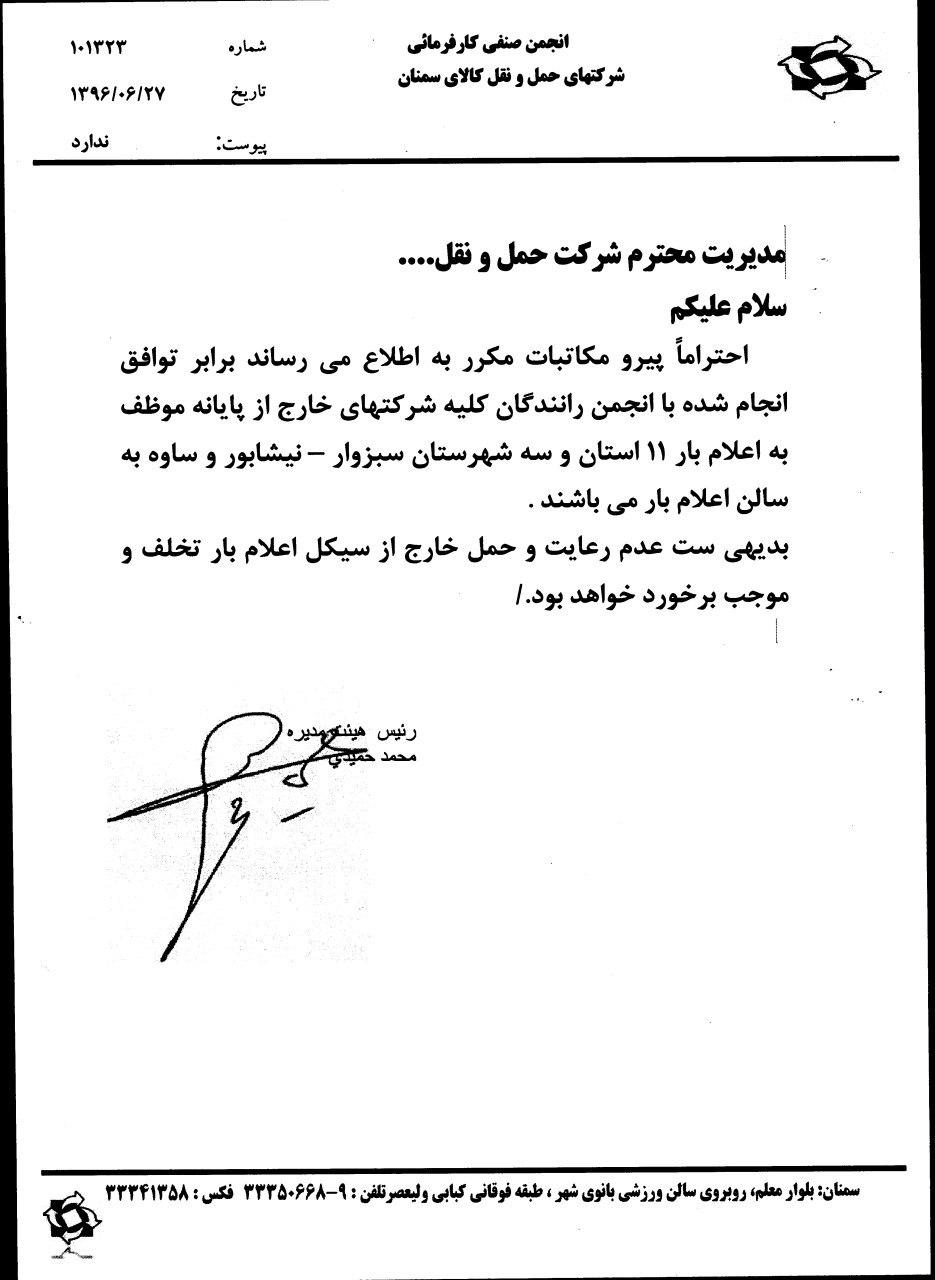 انجمن صنفی کارفرمائی
شرکتهای حمل و نقل کالای سمنان
شماره ۱۰۱۳۲۳
تاریخ ۱۳۹۶/۰۶/۲۷
پیوست: ندارد
مدیریت محترم شرکت حمل و نقل....
سلام علیکم
احتراماً پیرو مکاتبات مکرر به اطلاع می رساند برابر توافق
انجام شده با انجمن رانندگان کلیه شرکتهای خارج از پایانه موظف
به اعلام بار ۱۱ استان و سه شهرستان سبزوار – نیشابور و ساوه به
سالن اعلام بار می باشند .
بدیهی ست عدم رعایت و حمل خارج از سیکل اعلام بار تخلف و
موجب برخورد خواهد بود./
رئیس هیئت مدیره
محمد حمیدي
سمنان: بلوار معلم، روبروی سالن ورزشی بانوی شهر ، طبقه فوقانی کبابی ولیعصرتلفن : ۹-۳۳۳۵۰۶۶۸ فکس : ۳۳۳۴۱۳۵۸